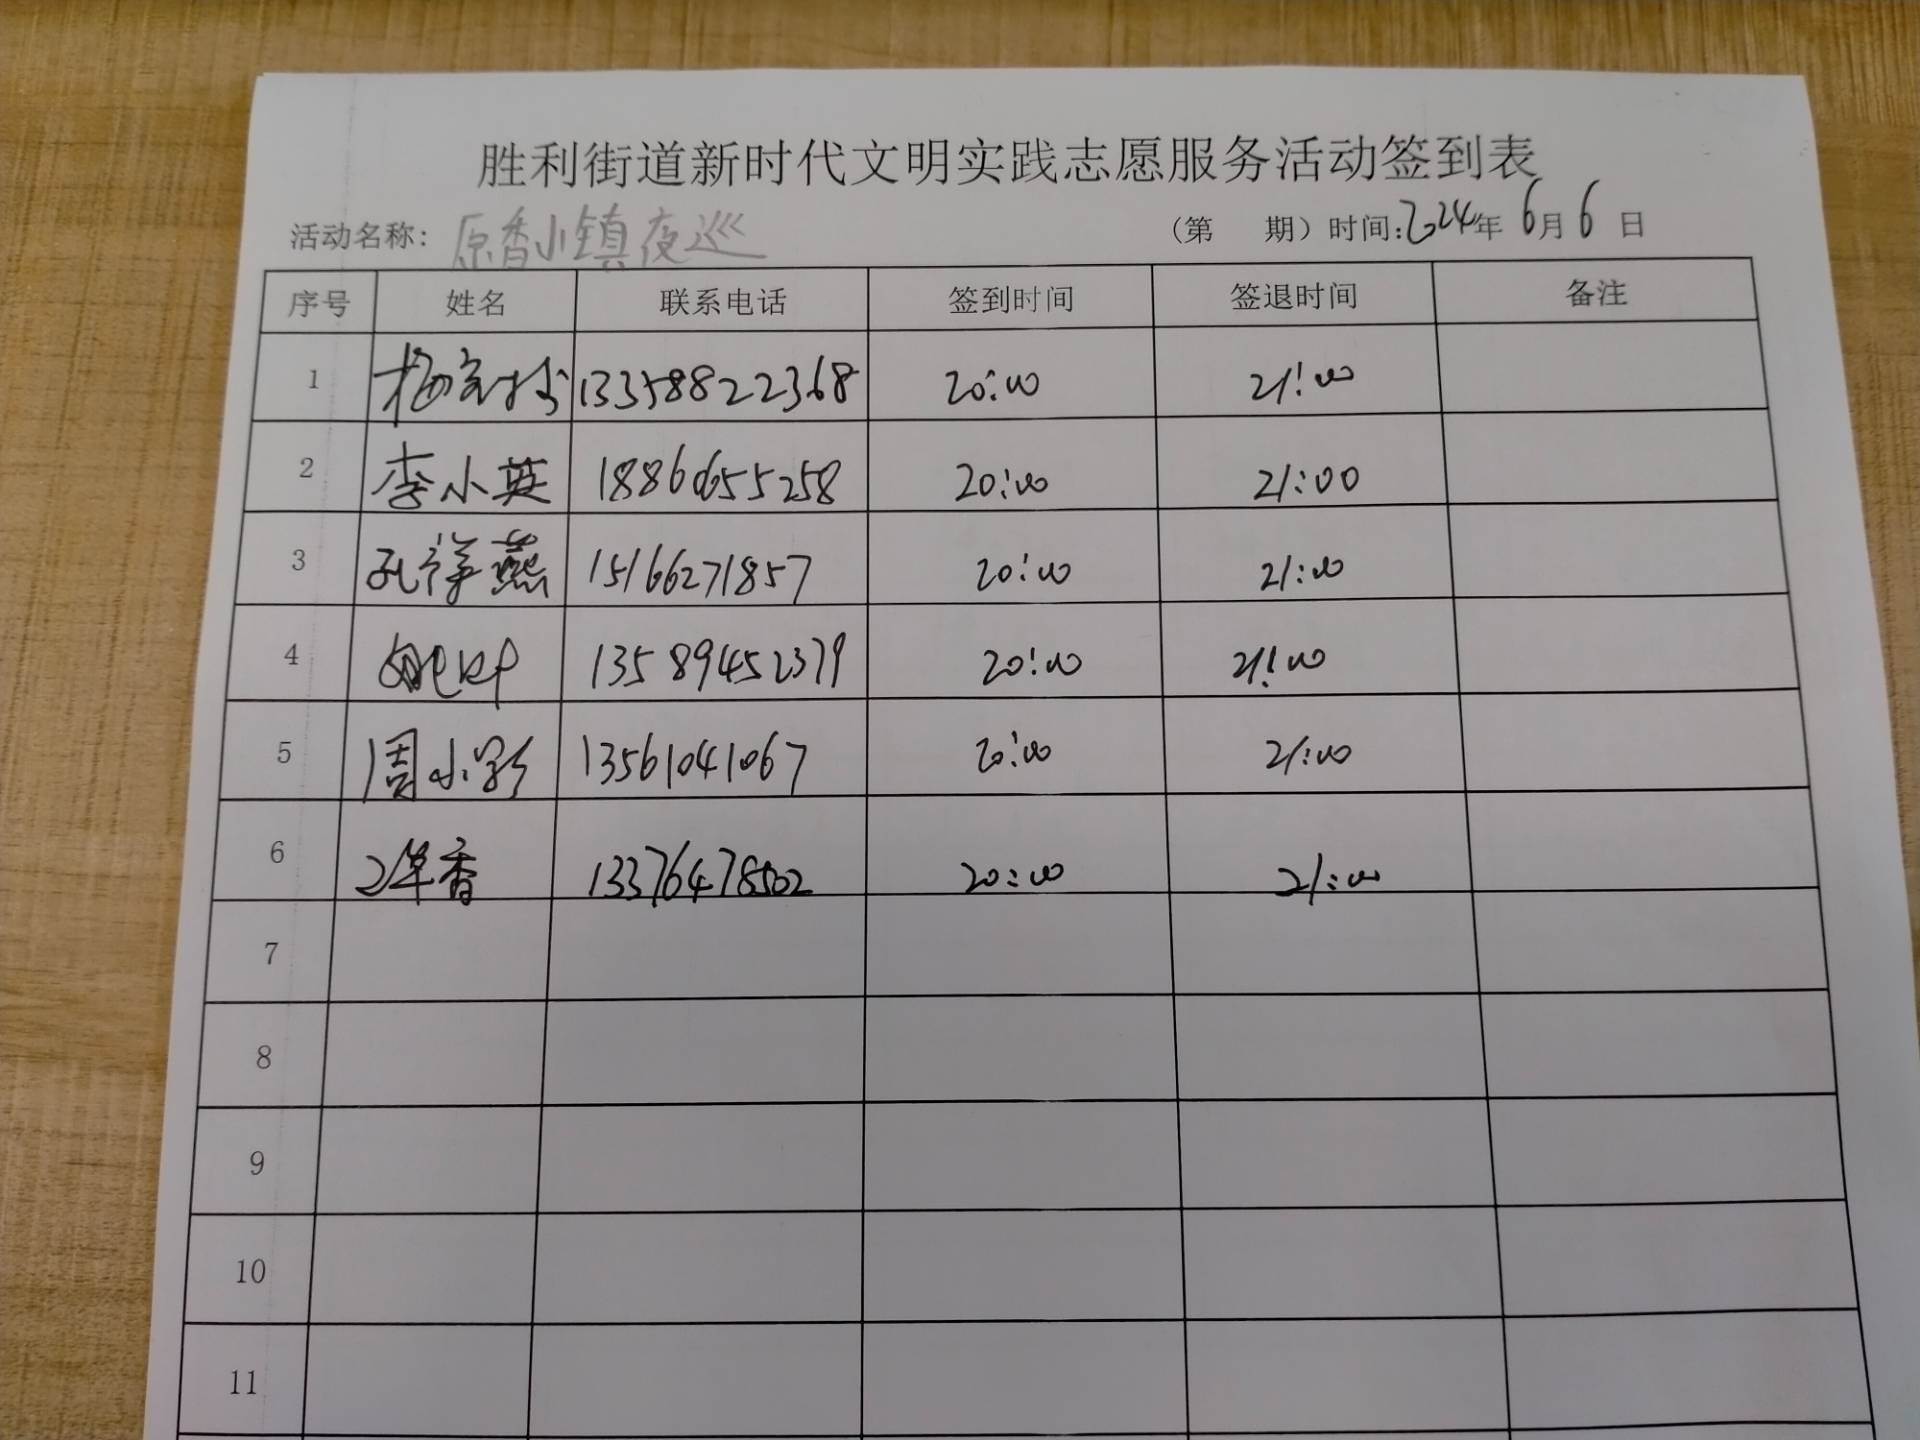 胜利街道新时代文明实践志愿服务活动签到表
活动名称：原香小镇夜巡 （第 期）时间：2024年6月6日
序号 姓名 联系电话 签到时间 签退时间 备注
1 13358822368 20:00 21:00
2 李小英 18860655258 20:00 21:00
3 孔祥燕 15166271857 20:00 21:00
4 13589452379 20:00 21:00
5 周小影 13561041067 20:00 21:00
6 13376478502 20:00 21:00
7
8
9
10
11